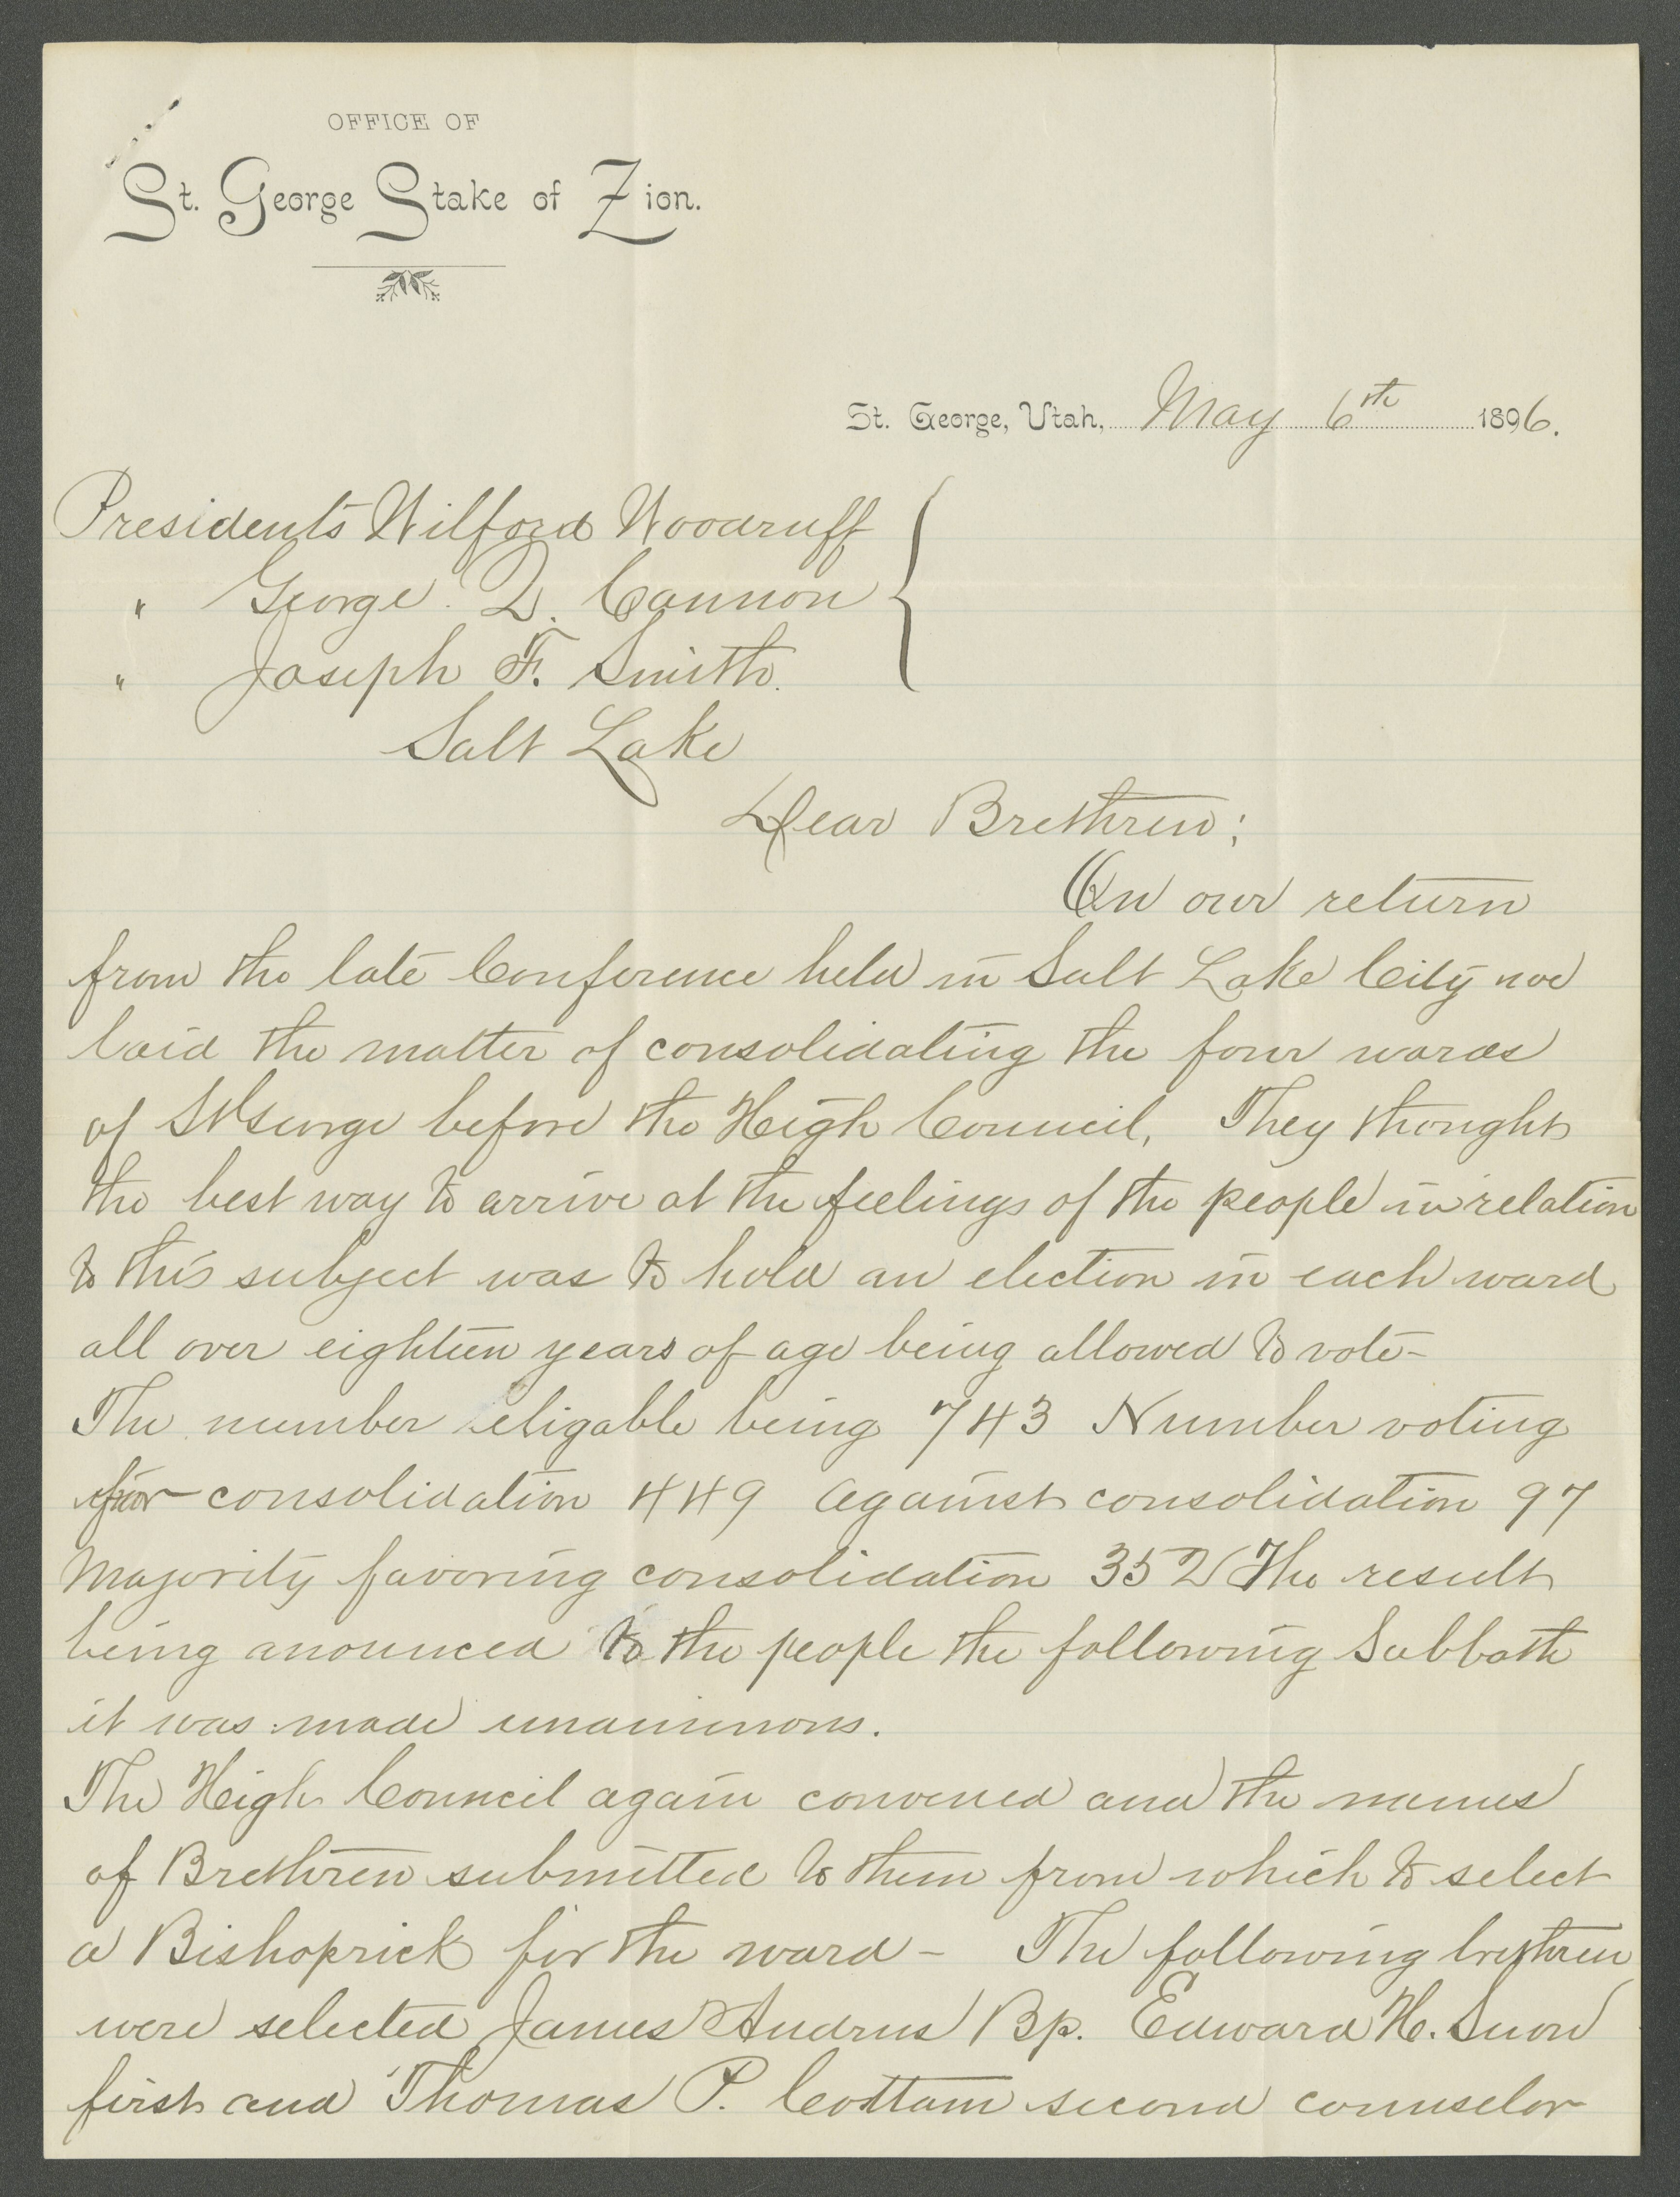 OFFICE OF
St. George Stake of Zion.
St. George, Utah, May 6th 1896.
Presidents Wilford Woodruff
" George Q. Cannon
" Joseph F. Smith.
Salt Lake
Dear Brethren;
On our return
from the late Conference held in Salt Lake City we
laid the matter of consolidating the four wards
of St George before the High Council, They thought
the best way to arrive at the feelings of the people in relation
to this subject was to hold an election in each ward
all over eighteen years of age being allowed to vote-
The number eligable being 743 Number voting
for consolidation 449 against consolidation 97
Majority favoring consolidation 352 The result
being anounced to the people the following Sabbath
it was made unanimous.
The High Council again convened and the names
of Brethren submitted to them from which to select
a Bishoprick for the ward - The following brethren
were selected James Andrus Bp. Edward H. Snow
first and Thomas P. Cottam second counselor